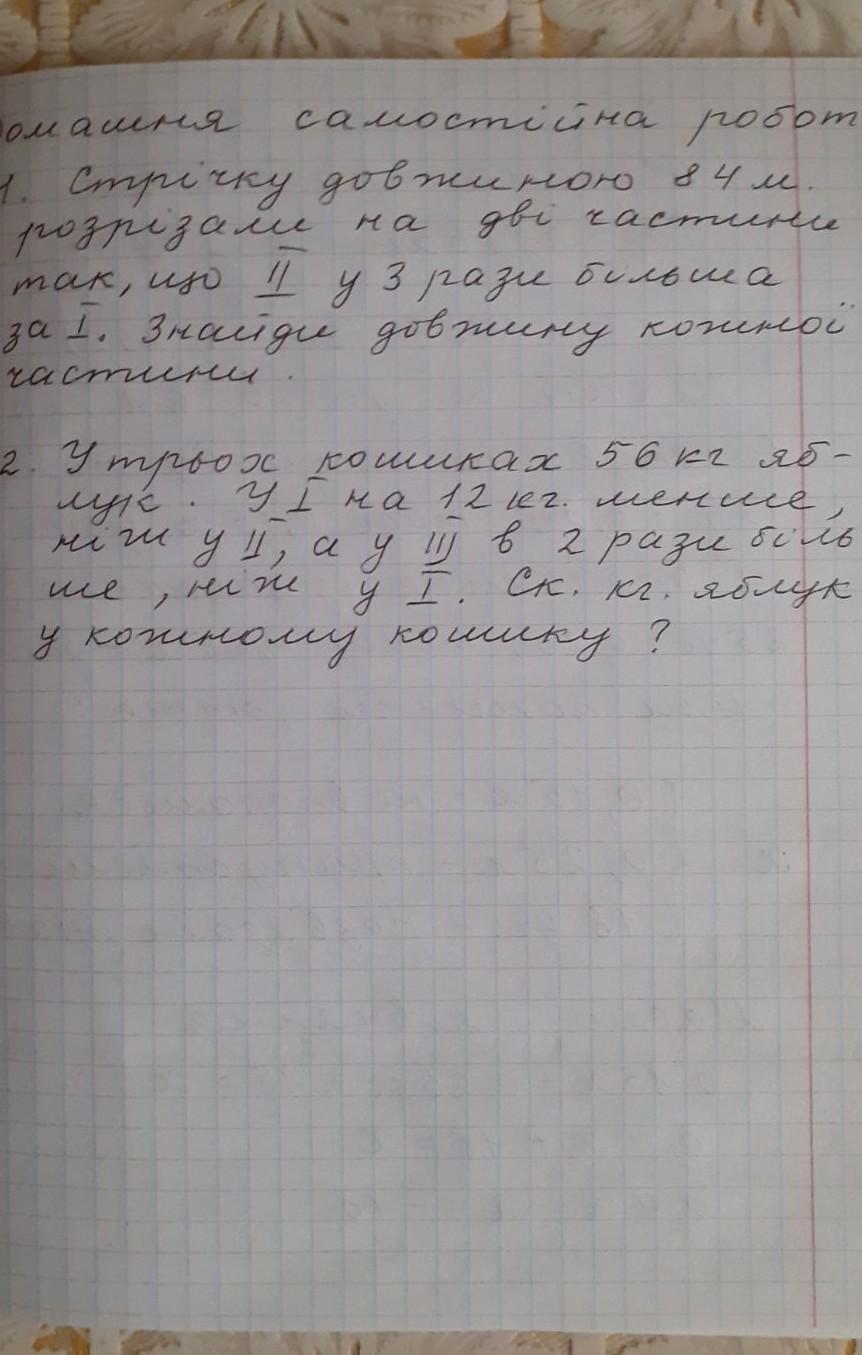 Домашня самостійна робот
1. Стрічку довжиною 84 м.
розрізали на дві частини
так, що II у 3 рази більша
за I. Знайди довжину кожної
частини.
2. У трьох кошиках 56 кг яб-
лук. У I на 12 кг. менше,
ніж у II, а у III в 2 рази біль
ше, ніж у I. Ск. кг. яблук
у кожному кошику?